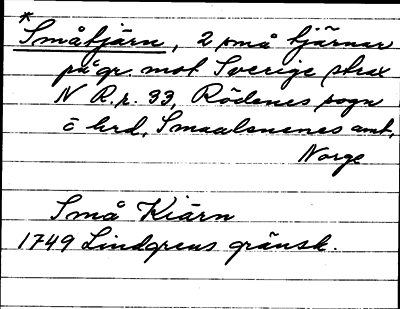 *
Småtjärn, 2 små tjärnar
på gr. mot Sverige strax
N R.r. 33, Rödenes sogn
o hrd, Smaalenenes amt,
Norge
Små Kiärn
1749 Lindgrens gränsk.